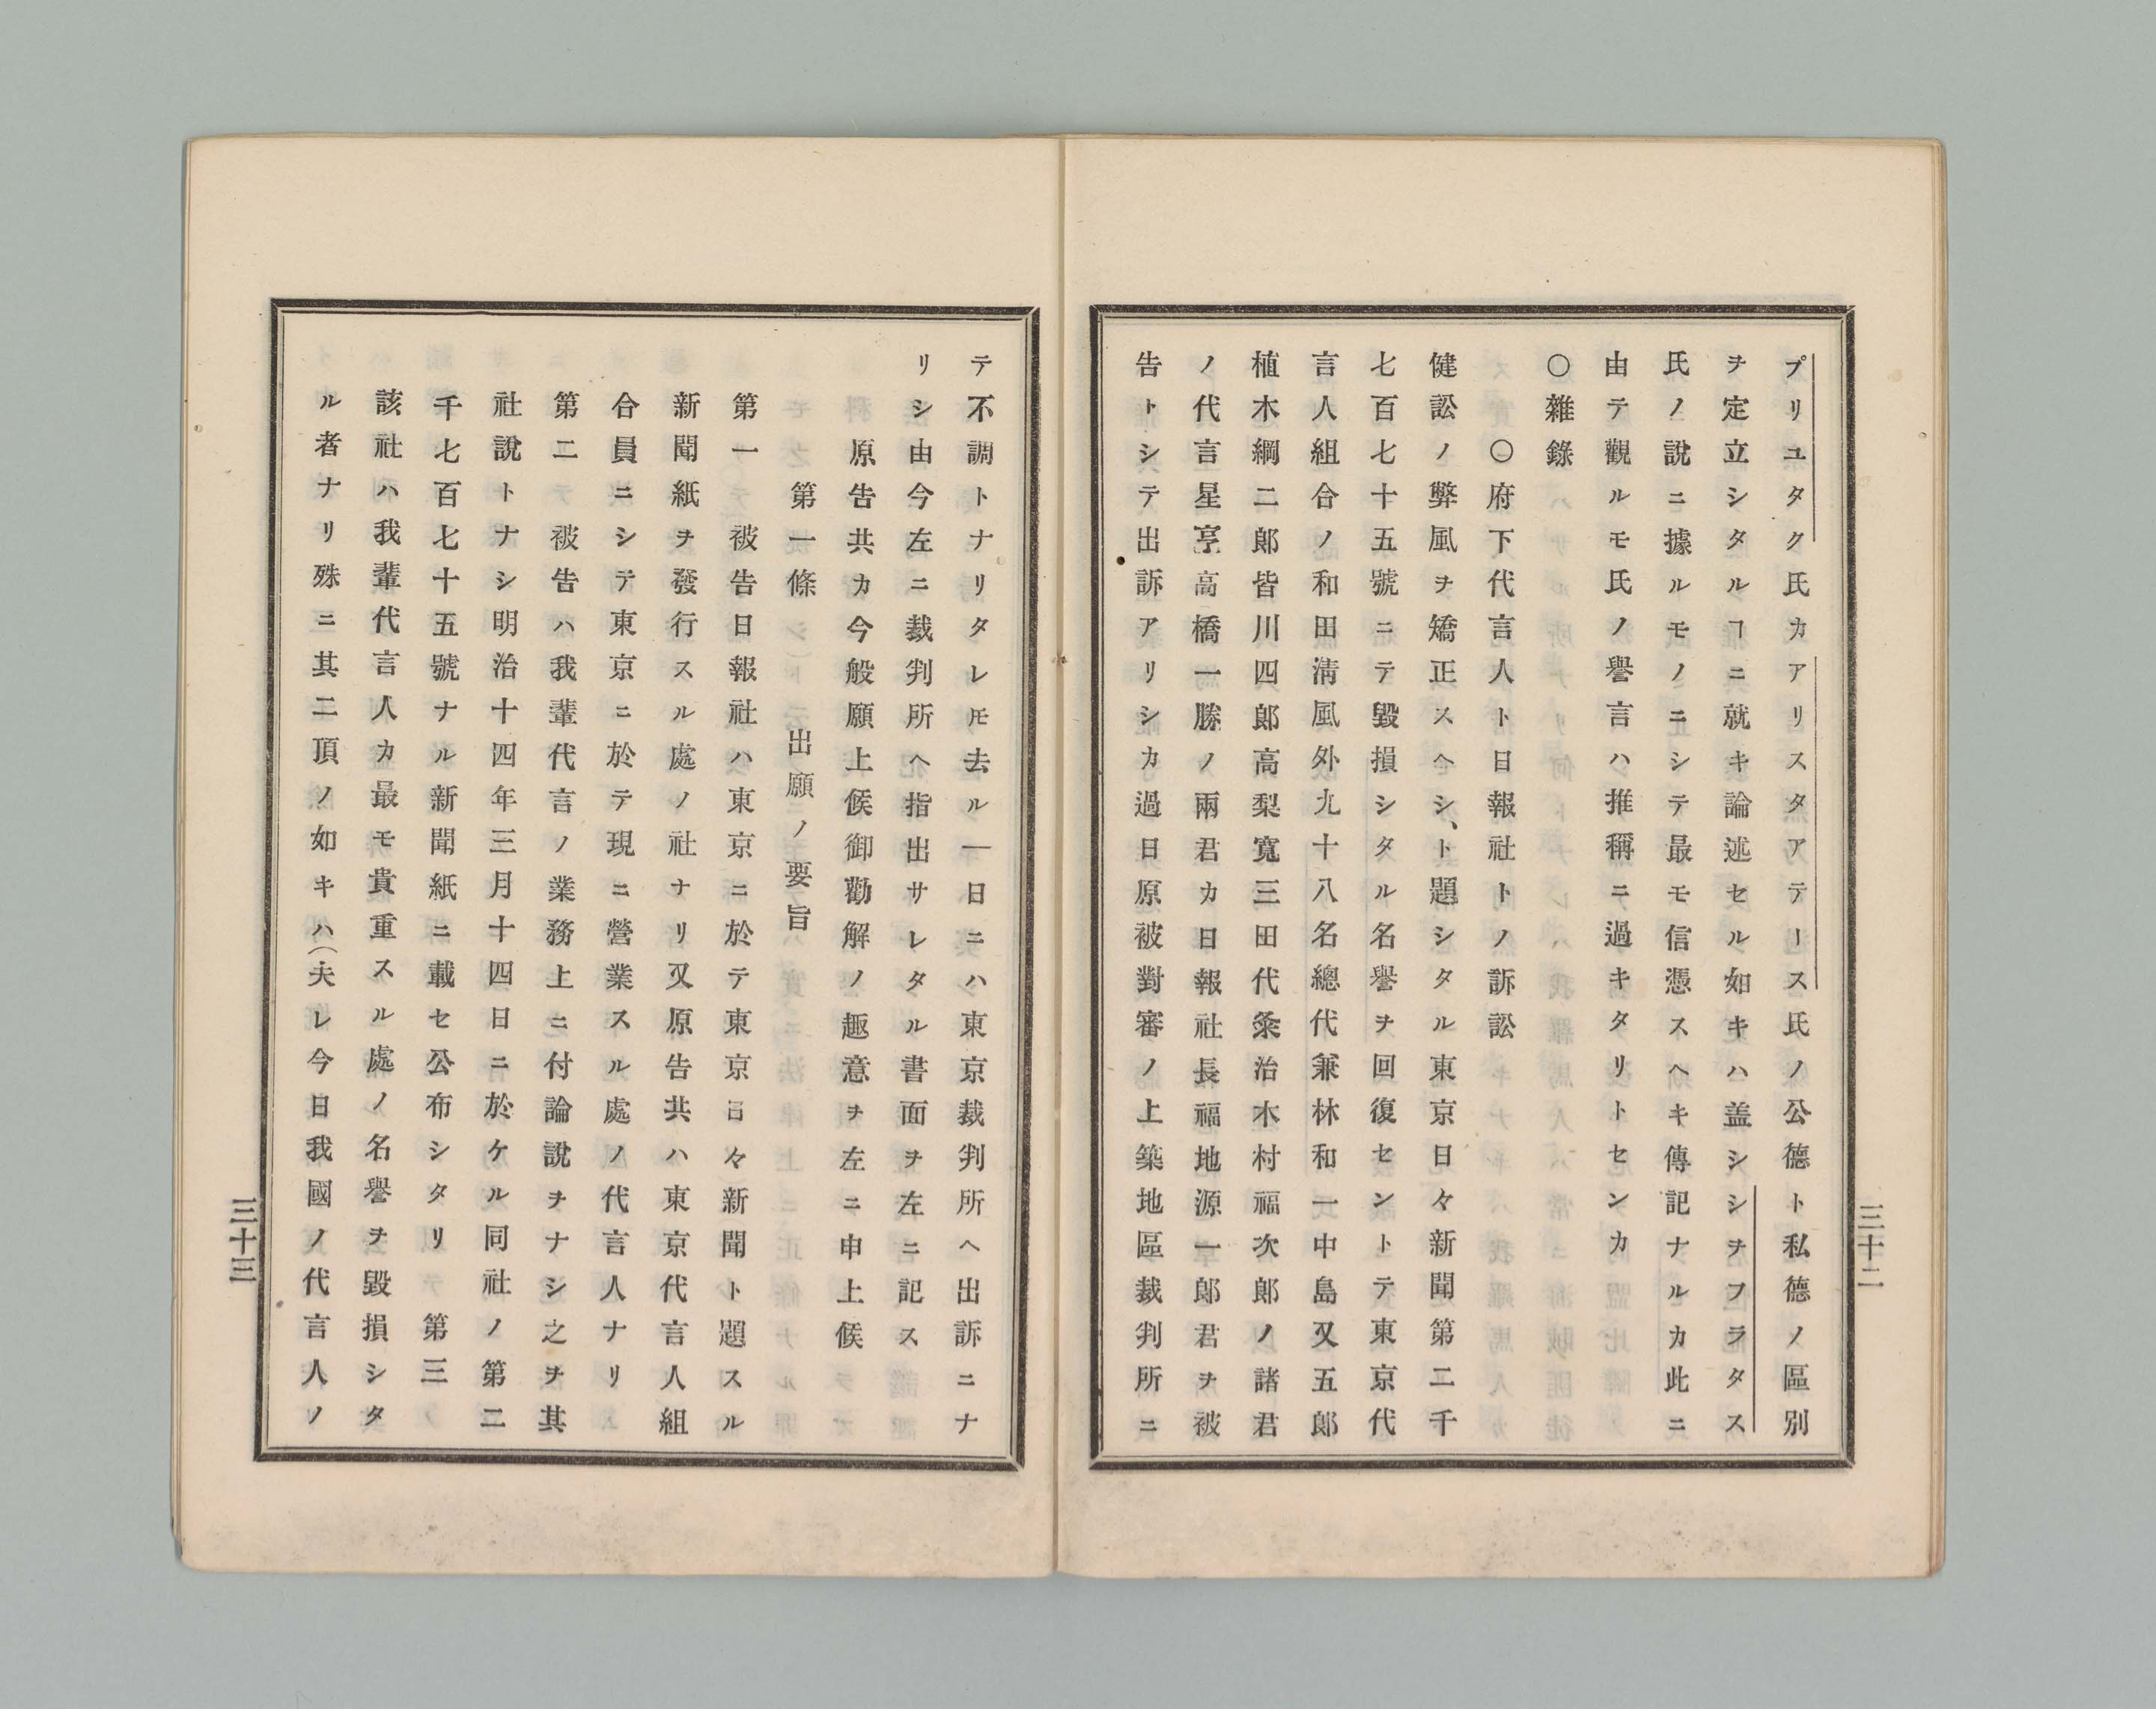 プリユタク氏カアリスタアテース氏ノ公德ト私德ノ區別
ヲ定立シタルヿニ就キ論述セル如キハ盖シシヲフラタス
氏ノ說ニ據ルモノニシテ最モ信憑スヘキ傳記ナルカ此ニ
由テ觀ルモ氏ノ譽言ハ推稱ニ過キタリトセンカ
〇雜錄
〇府下代言人ト日報社トノ訴訟
健訟ノ弊風ヲ矯正スヘシ、ト題シタル東京日々新聞第二千
七百七十五號ニテ毀損シタル名譽ヲ回復セントテ東京代
言人組合ノ和田淸風外九十八名總代兼林和一中島又五郎
植木綱二郎皆川四郎高梨寬三田代粂治木村福次郎ノ諸君
ノ代言星亨高橋一勝ノ兩君カ日報社長福地源一郎君ヲ被
吿トシテ出訴アリシカ過日原被對審ノ上築地區裁判所ニ
三十二
テ不調トナリタレ𪜈去ル一日ニハ東京裁判所ヘ出訴ニナ
リシ由今左ニ裁判所ヘ指出サレタル書面ヲ左ニ記ス
原吿共カ今般願上候御勸解ノ趣意ヲ左ニ申上候
第一條　出願ノ要旨
第一　被吿日報社ハ東京ニ於テ東京日々新聞ト題スル
新聞紙ヲ發行スル處ノ社ナリ又原吿共ハ東京代言人組
合員ニシテ東京ニ於テ現ニ營業スル處ノ代言人ナリ
第二　被吿ハ我輩代言ノ業務上ニ付論說ヲナシ之ヲ其
社說トナシ明治十四年三月十四日ニ於ケル同社ノ第二
千七百七十五號ナル新聞紙ニ載セ公布シタリ　第三
該社ハ我輩代言人カ最モ貴重スル處ノ名譽ヲ毀損シタ
ル者ナリ殊ニ其二項ノ如キハ（夫レ今日我國ノ代言人ノ
三十三